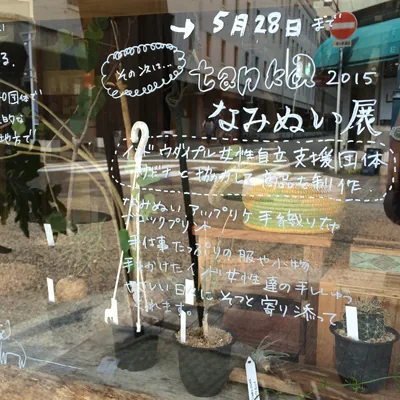 → 5月28日まで
その次は…
tanka 2015
なみぬい展
インドウダイプル女性自立支援団体
と協力して商品を制作
なみぬい、アップリケ手織り布
ブロックプリント
手仕事たっぷりの服や小物
手がけたインド女性達の手しごと
日々にそっと寄り添って
くれます。